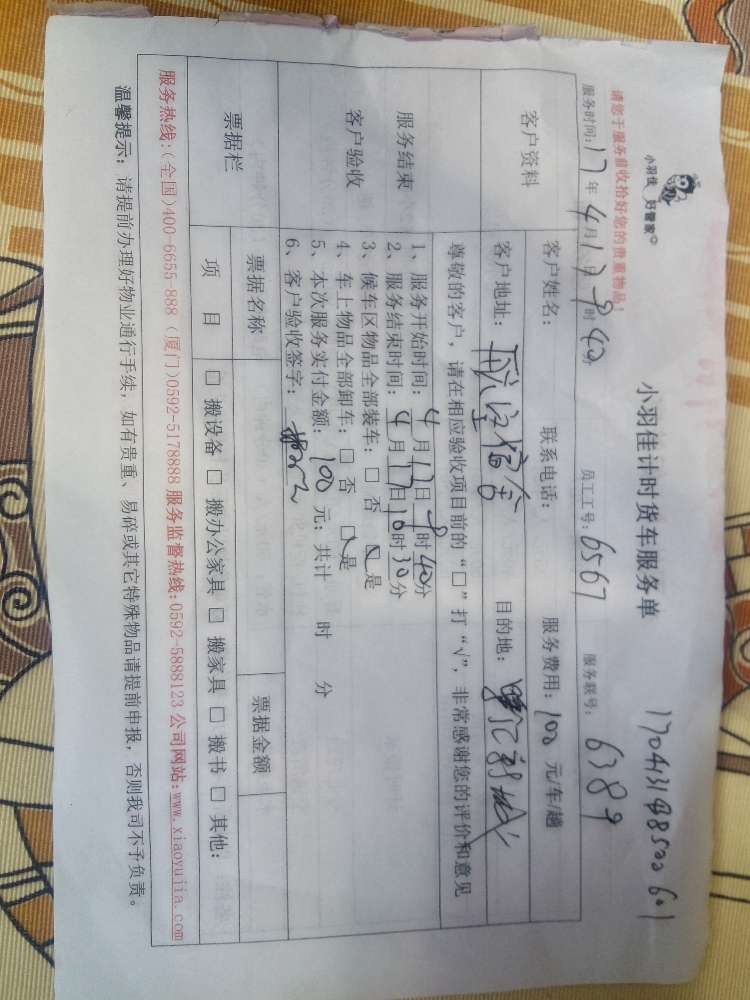 小羽佳 好管家
小羽佳计时货车服务单
请您于服务前收拾好您的贵重物品！
服务时间:17年4月17 9时40分 员工工号: 6567 服务联号: 6789
客户资料
客户姓名： 联系电话： 服务费用: 100 元/车/趟
客户地址： 宿舍 目的地： 新城
尊敬的客户，请在相应验收项目前的“□”打“√”，非常感谢您的评价和意见
服务结束
客户验收
1、服务开始时间: 4月17日9时40分
2、服务结束时间: 4月17日10时30分
3、候车区物品全部装车: □ 否 ☑ 是
4、车上物品全部卸车: □ 否 ☑ 是
5、本次服务实付金额: 100 元; 共计 时 分
6、客户验收签字:
票据栏
票据名称 票据金额
项 目 □ 搬设备 □ 搬办公家具 □ 搬家具 □ 搬书 □ 其他:
服务热线:(全国)400-6655-888 (厦门)0592-5178888 服务监督热线:0592-5888123 公司网站:www.xiaoyujia.com
温馨提示: 请提前办理好物业通行手续, 如有贵重、易碎或其它特殊物品请提前申报, 否则我司不予负责。